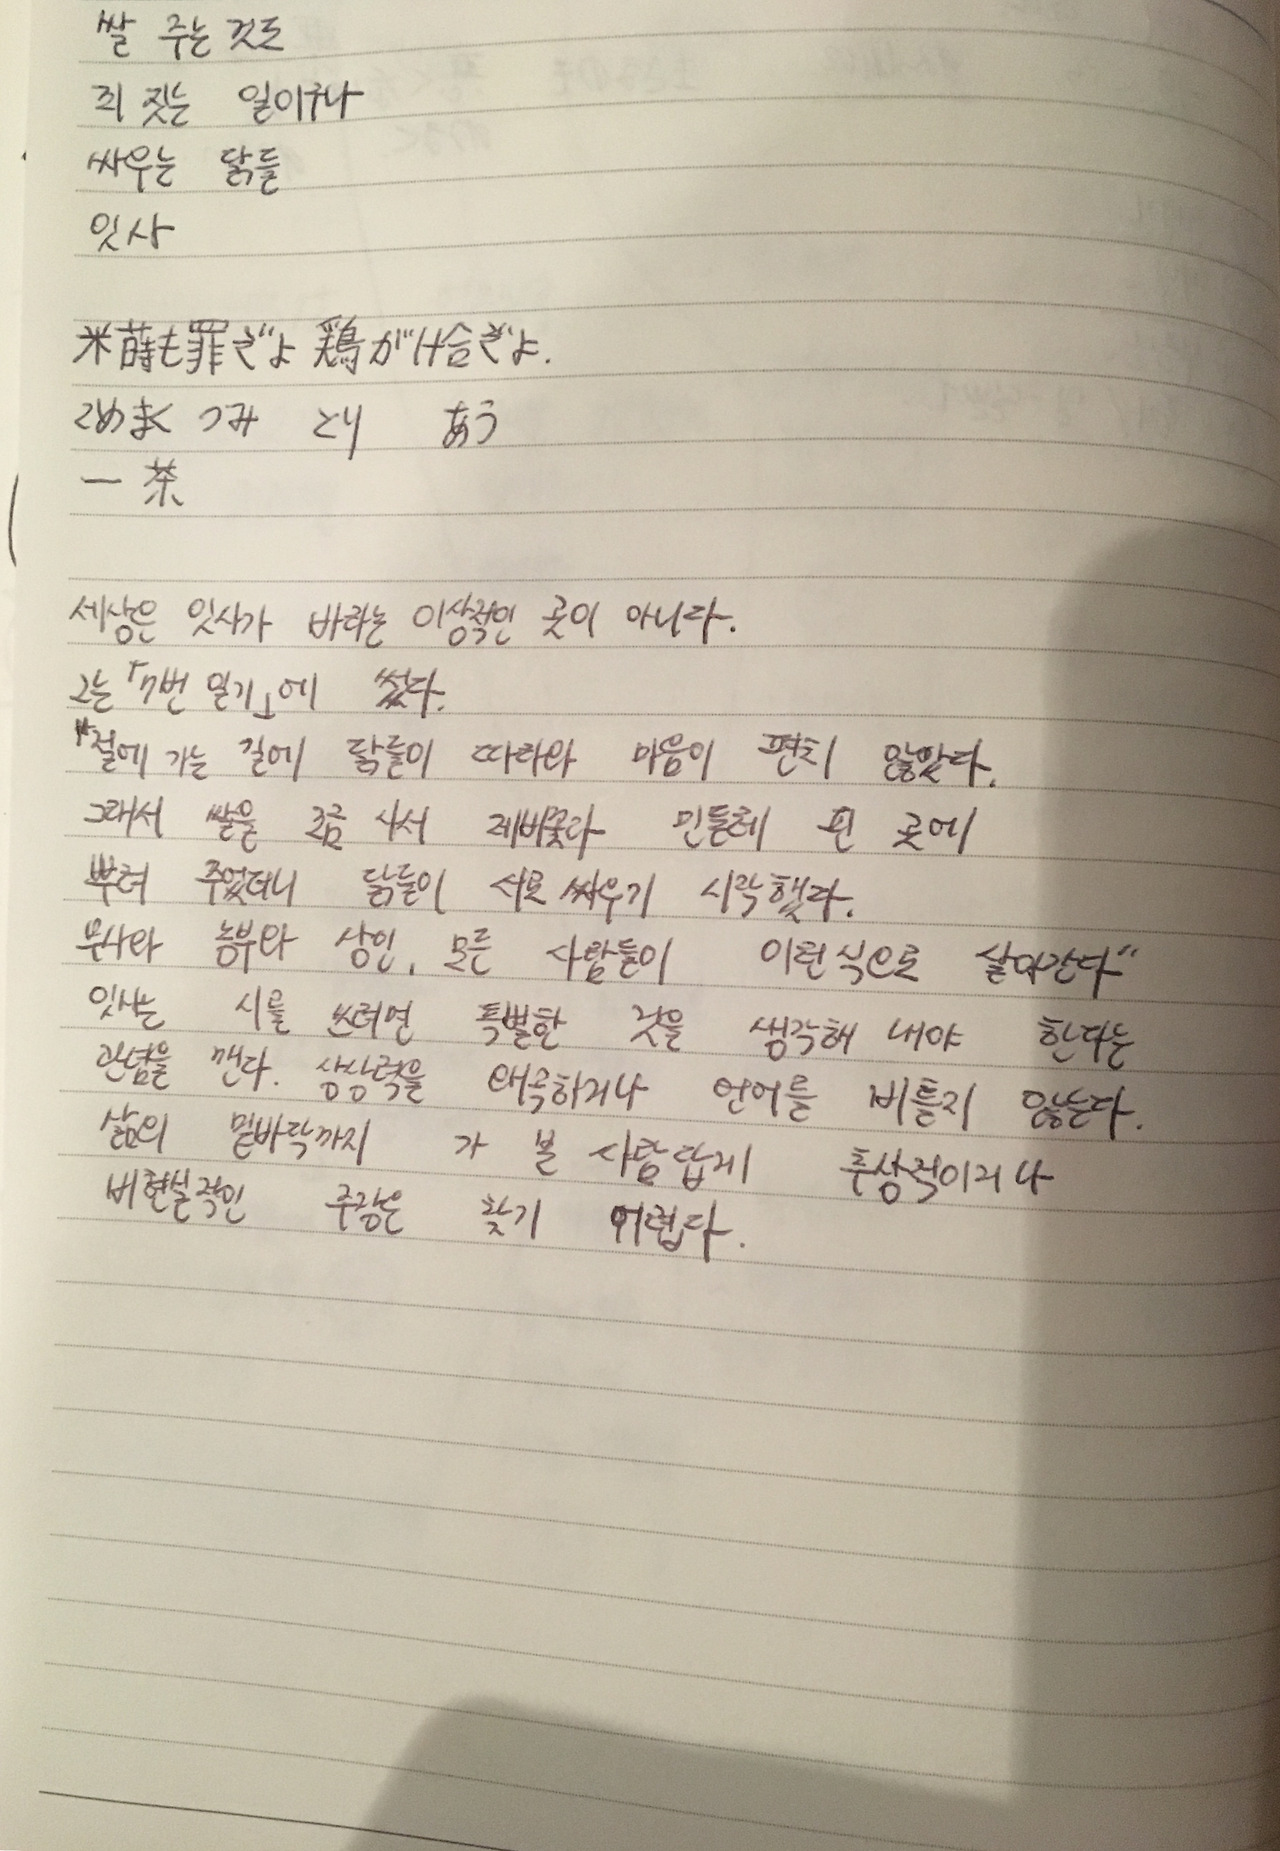 쌀 주는 것도
죄 짓는 일이구나
싸우는 닭들
잇사
米蒔も罪ぞよ 鶏がけ合ぞよ.
こめまく つみ とり あう
一茶
세상은 잇사가 바라는 이상적인 곳이 아니다.
그는 「7번 일기」에 썼다.
"절에 가는 길에 닭들이 따라와 마음이 편치 않았다.
그래서 쌀을 조금 사서 제비꽃과 민들레 핀 곳에
뿌려 주었더니 닭들이 서로 싸우기 시작했다.
무사와 농부와 상인, 모든 사람들이 이런 식으로 살아간다"
잇사는 시를 쓰려면 특별한 것을 생각해 내야 한다는
관념을 깬다. 상상력을 왜곡하거나 언어를 비틀지 않는다.
삶의 밑바닥까지 가 본 사람답게 추상적이거나
비현실적인 주장은 찾기 어렵다.